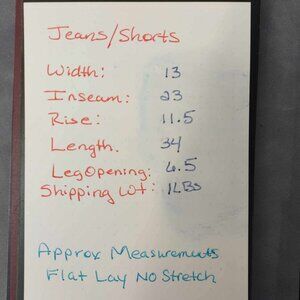 Jeans/Shorts
Width: 13
Inseam: 23
Rise: 11.5
Length. 34
Leg Opening: 6.5
Shipping Wt: 1LBS
Approx Measurements
Flat Lay No Stretch